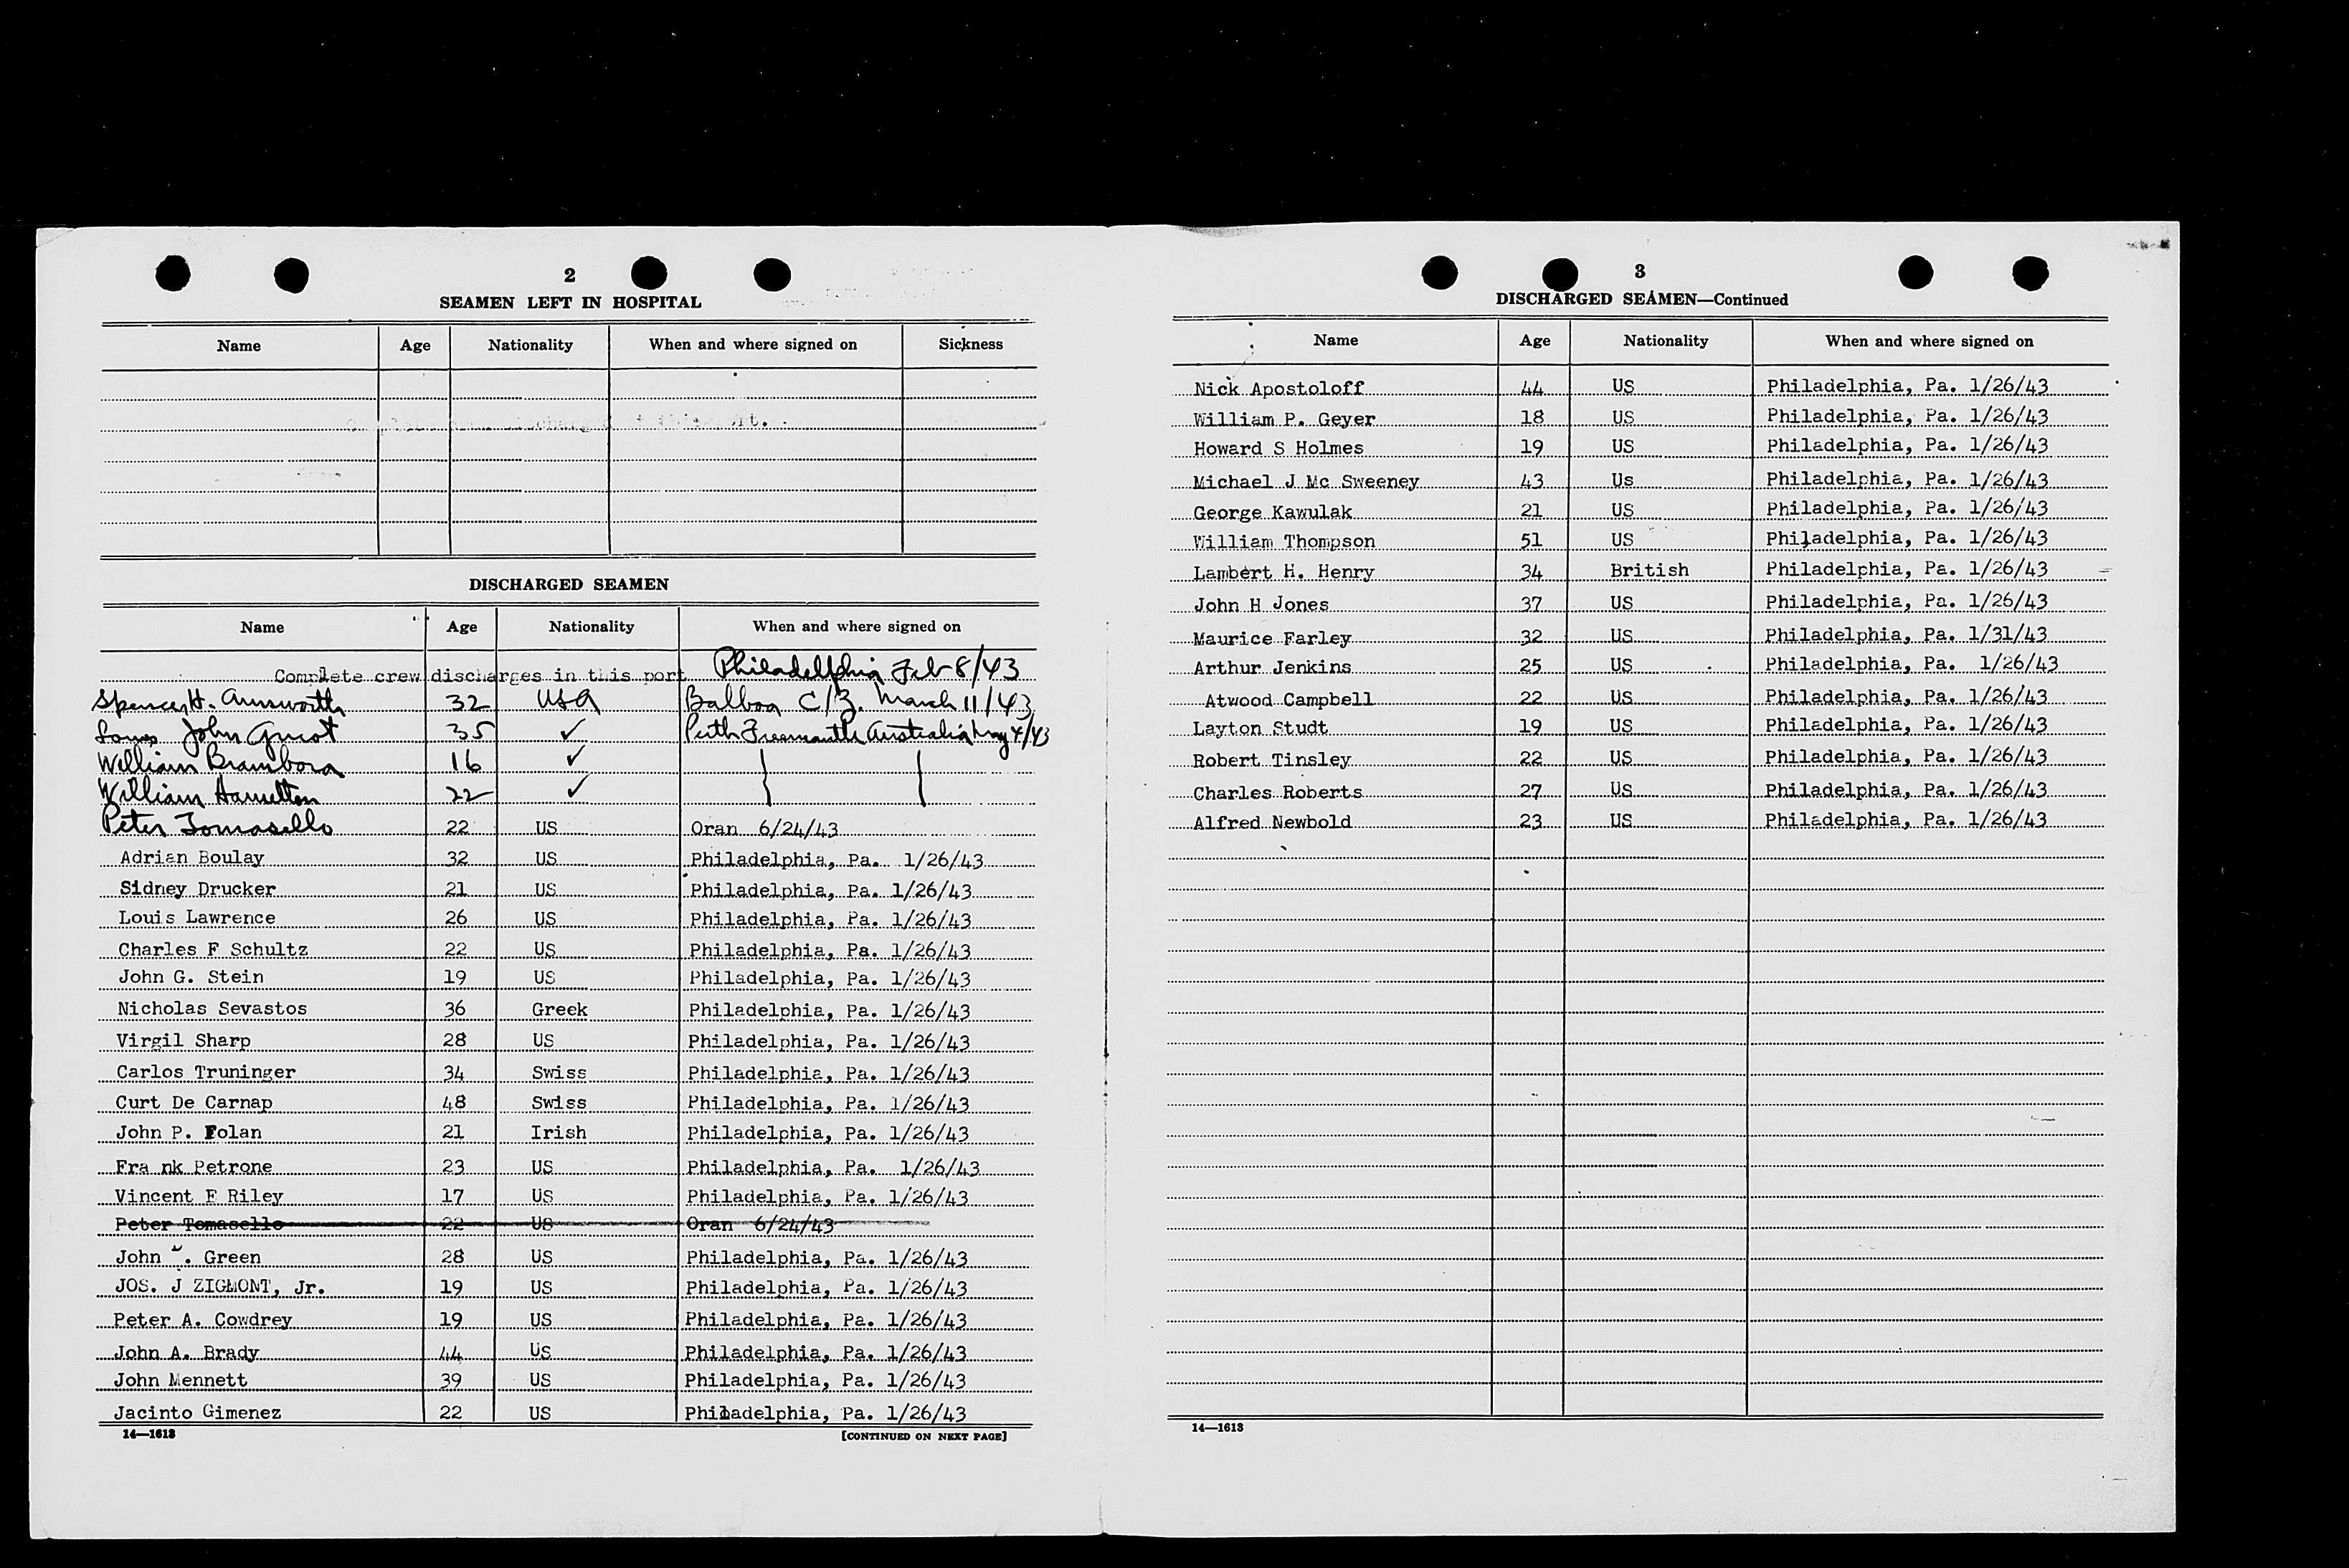 2
SEAMEN LEFT IN HOSPITAL
Name Age Nationality When and where signed on Sickness
DISCHARGED SEAMEN
Name Age Nationality When and where signed on
Complete crew discharges in this port Philadelphia Feb 8/43
Spencer H. Ainsworth 32 USA Balboa C/Z. March 11/43
Louis John 35 ✓ Perth Freemantle Australia May 4/43
William Brambora 16 ✓
William Hamilton 22 ✓
Peter Tomasello 22 US Oran 6/24/43
Adrian Boulay 32 US Philadelphia, Pa. 1/26/43
Sidney Drucker 21 US Philadelphia, Pa. 1/26/43
Louis Lawrence 26 US Philadelphia, Pa. 1/26/43
Charles F Schultz 22 US Philadelphia, Pa. 1/26/43
John G. Stein 19 US Philadelphia, Pa. 1/26/43
Nicholas Sevastos 36 Greek Philadelphia, Pa. 1/26/43
Virgil Sharp 28 US Philadelphia, Pa. 1/26/43
Carlos Truninger 34 Swiss Philadelphia, Pa. 1/26/43
Curt De Carnap 48 Swiss Philadelphia, Pa. 1/26/43
John P. Folan 21 Irish Philadelphia, Pa. 1/26/43
Fra nk Petrone 23 US Philadelphia, Pa. 1/26/43
Vincent F Riley 17 US Philadelphia, Pa. 1/26/43
Peter Tomasello 22 US Oran 6/24/43
John . Green 28 US Philadelphia, Pa. 1/26/43
JOS. J ZIGMONT, Jr. 19 US Philadelphia, Pa. 1/26/43
Peter A. Cowdrey 19 US Philadelphia, Pa. 1/26/43
John A. Brady 44 US Philadelphia, Pa. 1/26/43
John Mennett 39 US Philadelphia, Pa. 1/26/43
Jacinto Gimenez 22 US Philadelphia, Pa. 1/26/43
14—1613 [CONTINUED ON NEXT PAGE]
3
DISCHARGED SEAMEN—Continued
Name Age Nationality When and where signed on
Nick Apostoloff 44 US Philadelphia, Pa. 1/26/43
William P. Geyer 18 US Philadelphia, Pa. 1/26/43
Howard S Holmes 19 US Philadelphia, Pa. 1/26/43
Michael J Mc Sweeney 43 Us Philadelphia, Pa. 1/26/43
George Kawulak 21 US Philadelphia, Pa. 1/26/43
William Thompson 51 US Philadelphia, Pa. 1/26/43
Lambert H. Henry 34 British Philadelphia, Pa. 1/26/43
John H Jones 37 US Philadelphia, Pa. 1/26/43
Maurice Farley 32 US Philadelphia, Pa. 1/31/43
Arthur Jenkins 25 US Philadelphia, Pa. 1/26/43
Atwood Campbell 22 US Philadelphia, Pa. 1/26/43
Layton Studt 19 US Philadelphia, Pa. 1/26/43
Robert Tinsley 22 US Philadelphia, Pa. 1/26/43
Charles Roberts 27 US Philadelphia, Pa. 1/26/43
Alfred Newbold 23 US Philadelphia, Pa. 1/26/43
14—1613